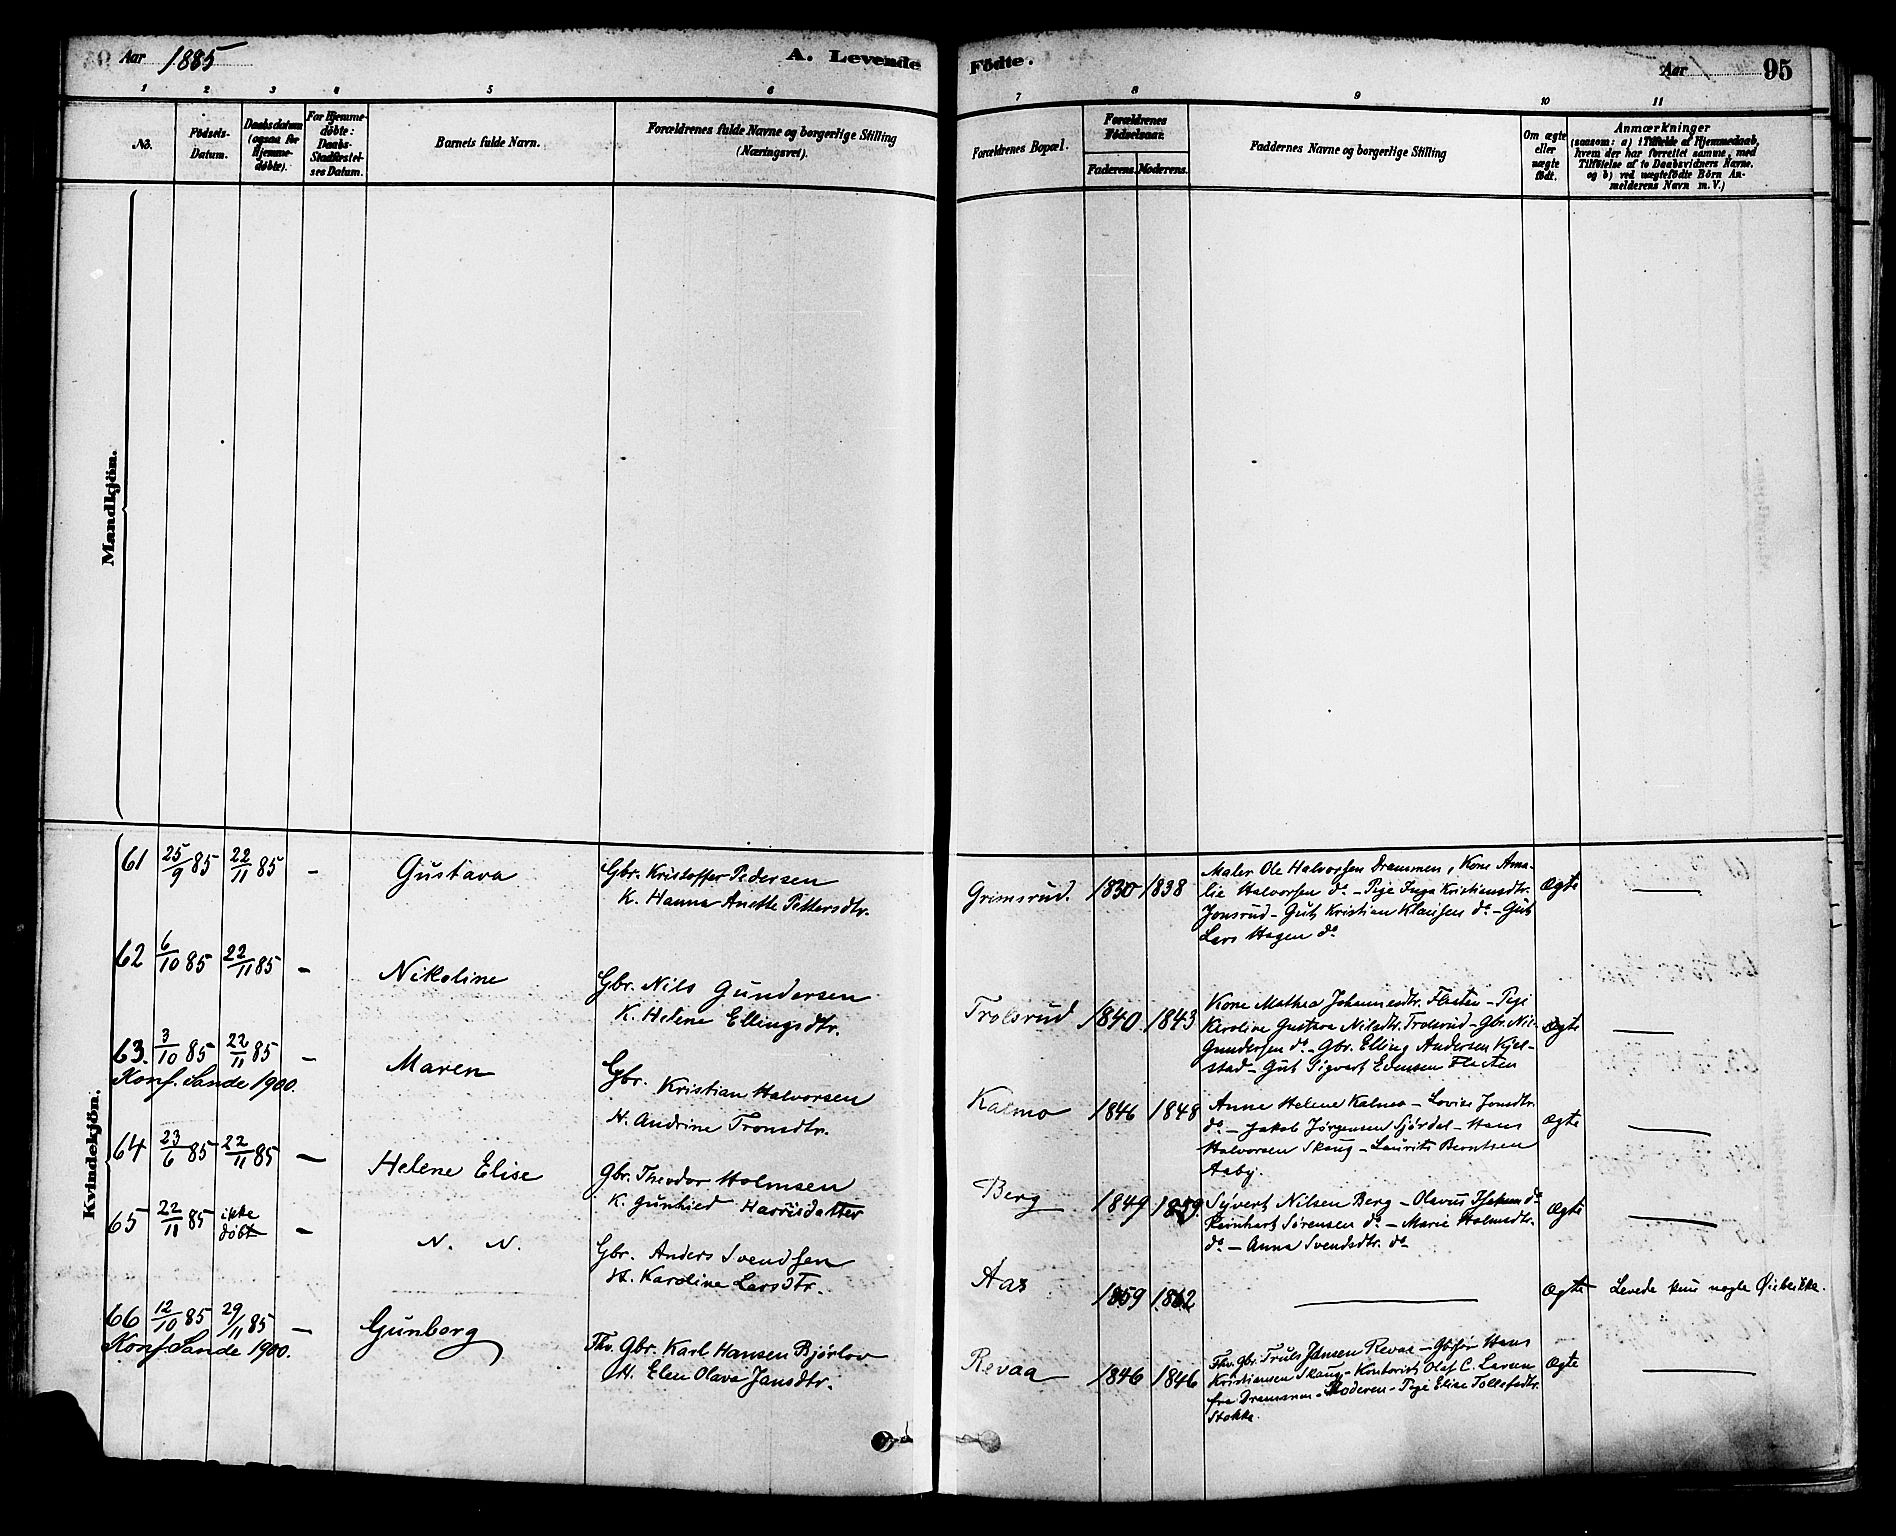 Aar 1885
A. Levende
Födte.
Aar
95
1 2 3 4 5 6 7 8 9 10 11
No.
Födsels-
Datum.
Daabsdatum
(ogsaa for
Hjemme-
døbte).
For Hjemme-
döbte:
Daabs-
Stadfæstel-
ses Datum.
Barnets fulde Navn.
Forældrenes fulde Navne og borgerlige Stilling
(Næringsvei).
Forældrenes Bopæl.
Forældrenes
Fødselsaar.
Faderens. Moderens.
Faddernes Navne og borgerlige Stilling
Om ægte
eller
uægte
födt.
Anmærkninger
(saasom: a) i Tilfælde af Hjemmedaab,
hvem der har forrettet samme, med
Tilföielse af to Daabsvidners Navne,
og b) ved uægtefödte Börn An-
melderens Navn m. V.)
Mandkjön.
Kvindekjön.
61 25/9 85 22/11 85 - Gustava
Gbr. Kristoffer Pedersen
K. Hanna Anette Pettersdtr.
Grimsrud. 1830 1838
Maler Ole Halvorsen Drammen, Kone Ama-
lie Halvorsen do - Pige Inga Kristiansdtr.
Jonsrud - Gut Kristian Klausen do - Gut
Lars Hagen do
Ægte
62 6/10 85 22/11 85 - Nikoline
Gbr. Nils Gundersen
K. Helene Ellingsdtr.
Trolsrud 1840 1843
Kone Mathea Johannesdtr. Flaten - Pige
Karoline Gustava Nilsdtr. Trolsrud - Gbr. Nils
Gundersen do - Gbr. Elling Andersen Kjel-
stad - Gut Sigvart Evensen Flaten
Ægte
63. 3/10 85 22/11 85 - Maren
Konf. Sande 1900.
Gbr. Kristian Halvorsen
H. Andrine Tronsdtr.
Kalmo 1846 1848
Anne Helene Kalmo - Lovise Jonsdtr.
do - Jakob Jørgensen Fjordal - Hans
Halvorsen Skaug - Laurits Berntsen
Aaby.
Ægte
64 23/6 85 22/11 85 - Helene Elise
Gbr. Theodor Holmsen
K. Gunhild Harrisdatter
Berg 1849 1859
Syvert Nilsen Berg - Olavus Isaksen do
Reinhart Sørensen do - Marie Holmsdtr.
do - Anna Svendsdtr. do
Ægte
65 22/11 85 ikke døbt - N. N.
Gbr. Anders Svendsen
H. Karoline Larsdtr.
Aas 1859 1862
Ægte Levede kun nogle Øieblikke.
66 12/10 85 29/11 85 - Gunborg
Konf. Sande 1900.
Thv. Gbr. Karl Hansen Bjørlov
H. Elen Olava Jansdtr.
Revaa 1846 1846
Thv. Gbr. Truls Jansen Revaa - Gbr Hans
Kristiansen Skaug - Kontorist Olaf C. Larsen
fra Drammen - Moderen - Pige Elise Tollefsdtr.
Stokke.
Ægte